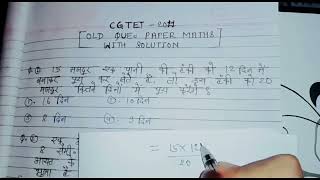 CGTET - 2011
OLD QUE. PAPER MATHS
WITH SOLUTION
15 मजदूर एक पानी की टंकी को 12 दिन में
बनाकर पूरा कर लेते हैं, तो इस टंकी को 20
मजदूर कितने दिनों में पूरा करेंगे ?
1. 16 दिन 2. 10 दिन
3. 8 दिन 4. 9 दिन
एक
= 15 × 12
20